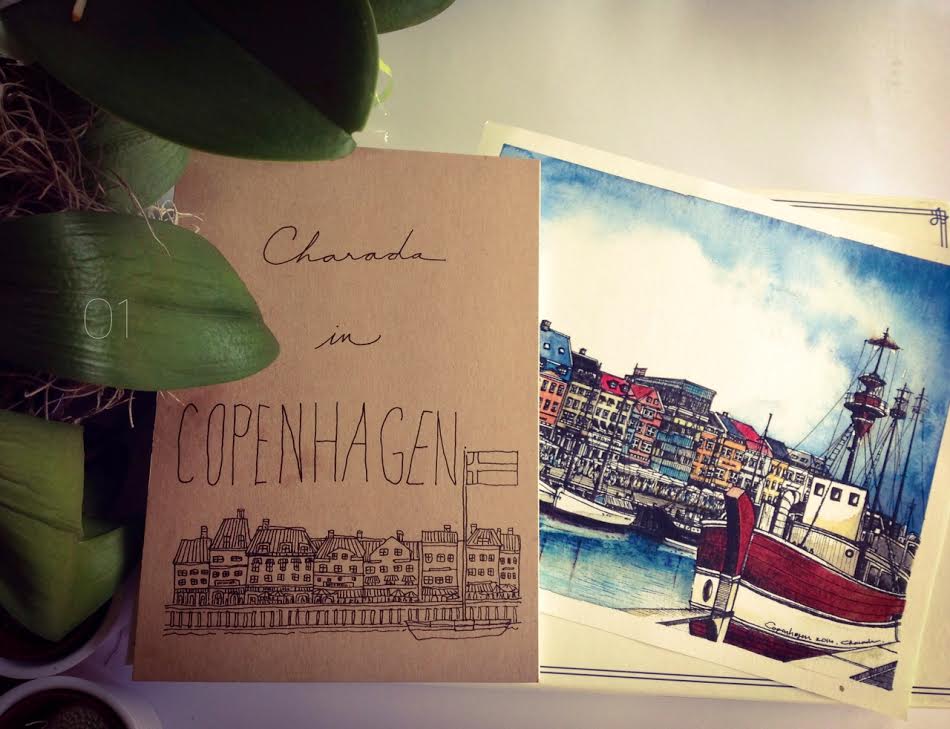 Charada
in
COPENHAGEN
01
Copenhagen 2014. Charada.